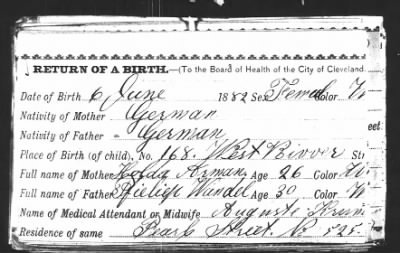 RETURN OF A BIRTH.—(To the Board of Health of the City of Cleveland
Date of Birth 6 June 1882 Sex Female Color W
Nativity of Mother German
Nativity of Father " German
eet.
Place of Birth (of child), No. 168. West River Str
Full name of Mother Age 26 Color W
Full name of Father Age 30 Color W
Name of Medical Attendant or Midwife Auguste
Residence of same Pearl Street. No 525.